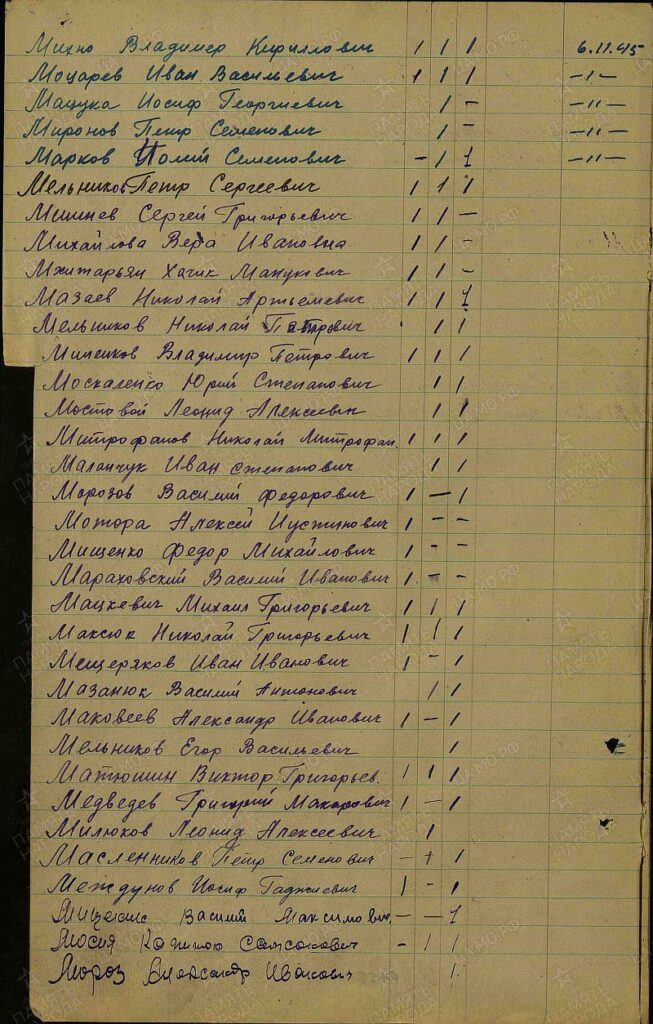 Михно Владимир Кириллович 1 1 1 6.11.45
Моцарев Иван Васильевич 1 1 1 -"-
Мацука Иосиф Георгиевич 1 - -"-
Миронов Петр Семенович 1 - -"-
Марков Семенович - 1 1 -"-
Мельников Петр Сергеевич 1 1 1
Сергей Григорьевич 1 1 -
Михайлова Вера Ивановна 1 1 -
Мхитарьян Хачик 1 1 -
Мазаев Николай Артьемевич 1 1 1
Мельников Николай Петрович 1 1
Миненков Владимир Петрович 1 1 1
Москаленко Юрий Степанович 1 1
Мостовой Леонид Алексеевич 1 1
Митрофанов Николай Митрофан. 1 1 1
Маланчук Иван Степанович 1 1
Морозов Василий Федорович 1 - 1
Мотора Алексей Иустинович 1 - -
Мищенко Федор Михайлович 1 - -
Мараховский Василий Иванович 1 - -
Мацкевич Михаил Григорьевич 1 1 1
Максюк Николай Григорьевич 1 1 1
Мещеряков Иван Иванович 1 - 1
Мазанюк Василий Антонович 1 1
Маковеев Александр Иванович 1 - 1
Мельников Егор Васильевич 1
Матюшин Виктор Григорьев. 1 1 1
Медведев Григорий Макарович 1 - 1
Милюков Леонид Алексеевич 1
Масленников Петр Семенович - + 1
Междунов Иосиф Гаджиевич 1 - 1
Василий Максимович - - 1
Мосия Самсонович - 1 1
Мороз Александр Иванович 1